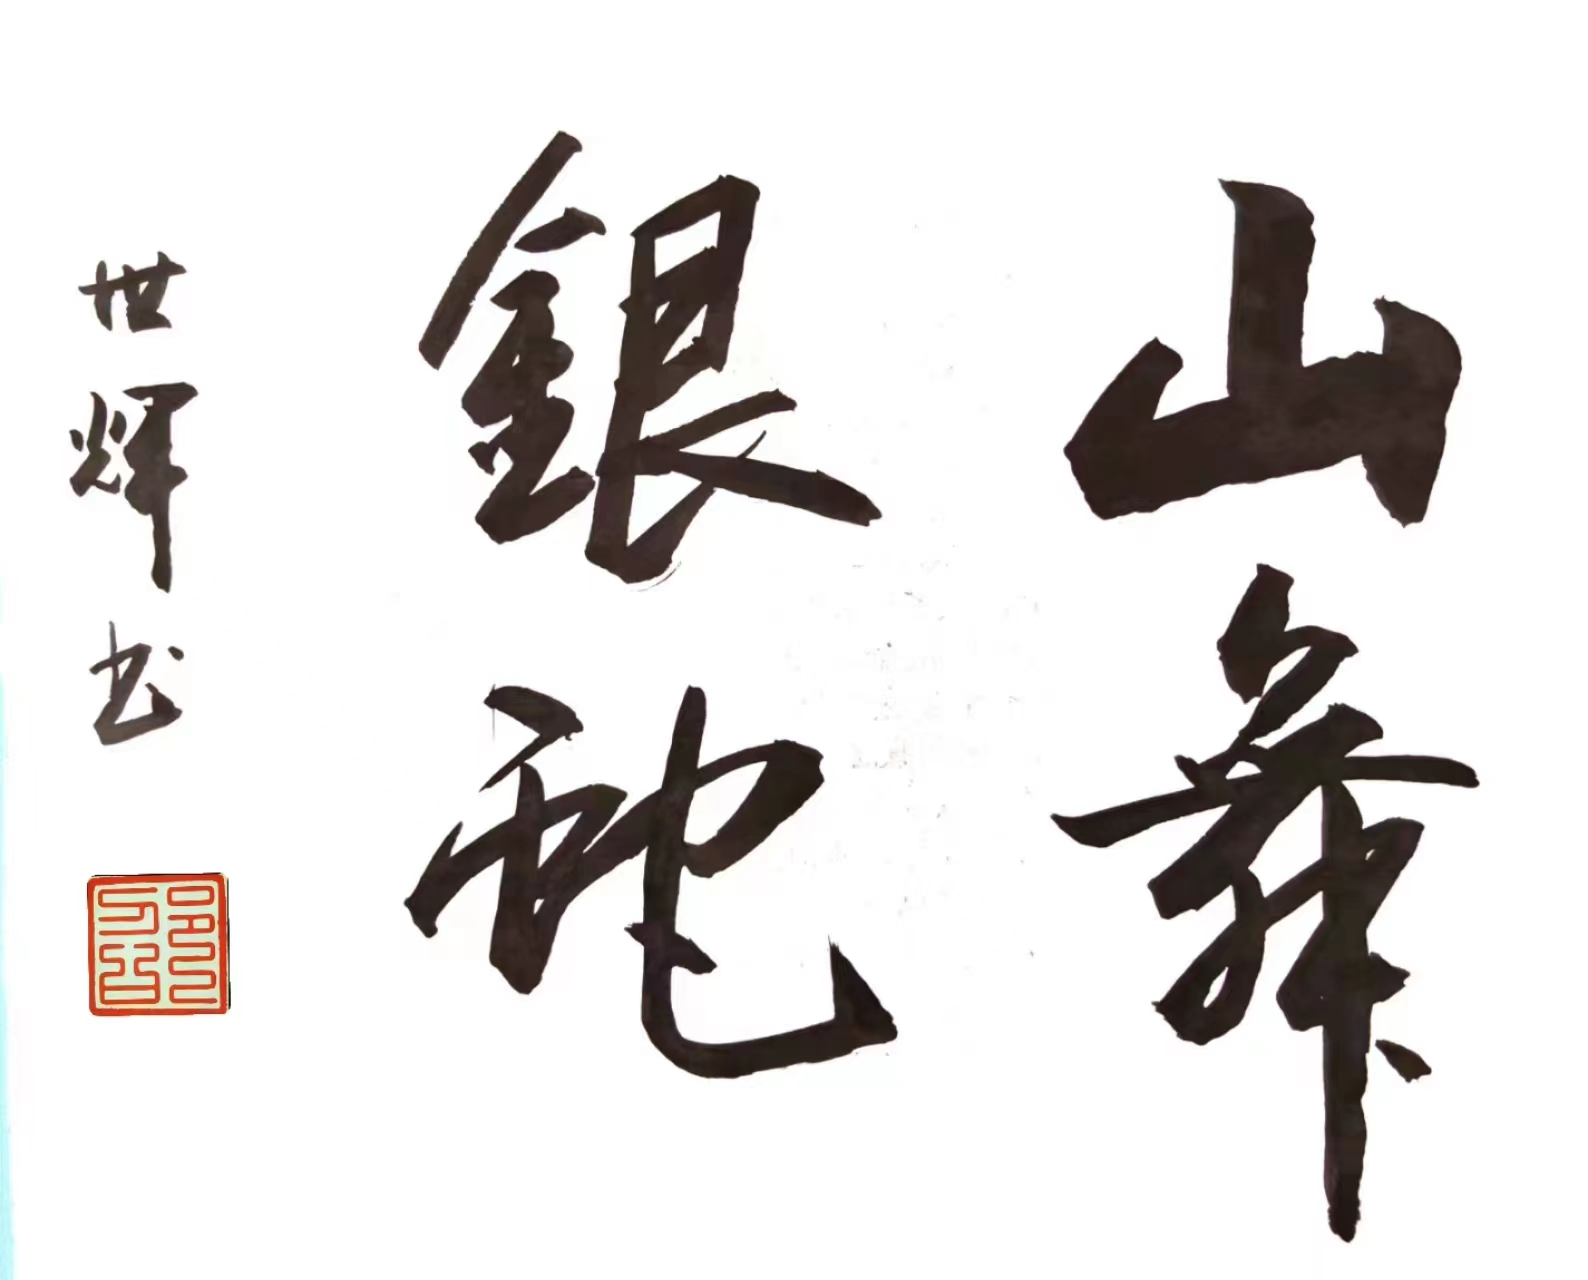 山舞
銀蛇
世辉书